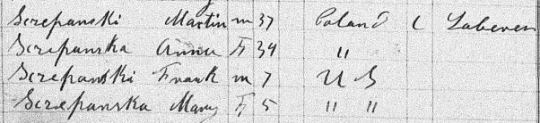 Screpanski Martin m 37 Poland C Laborer
Screpanska Anna F 34 "
Screpanski Frank m 7 U S
Screpanska Mary F 5 " "